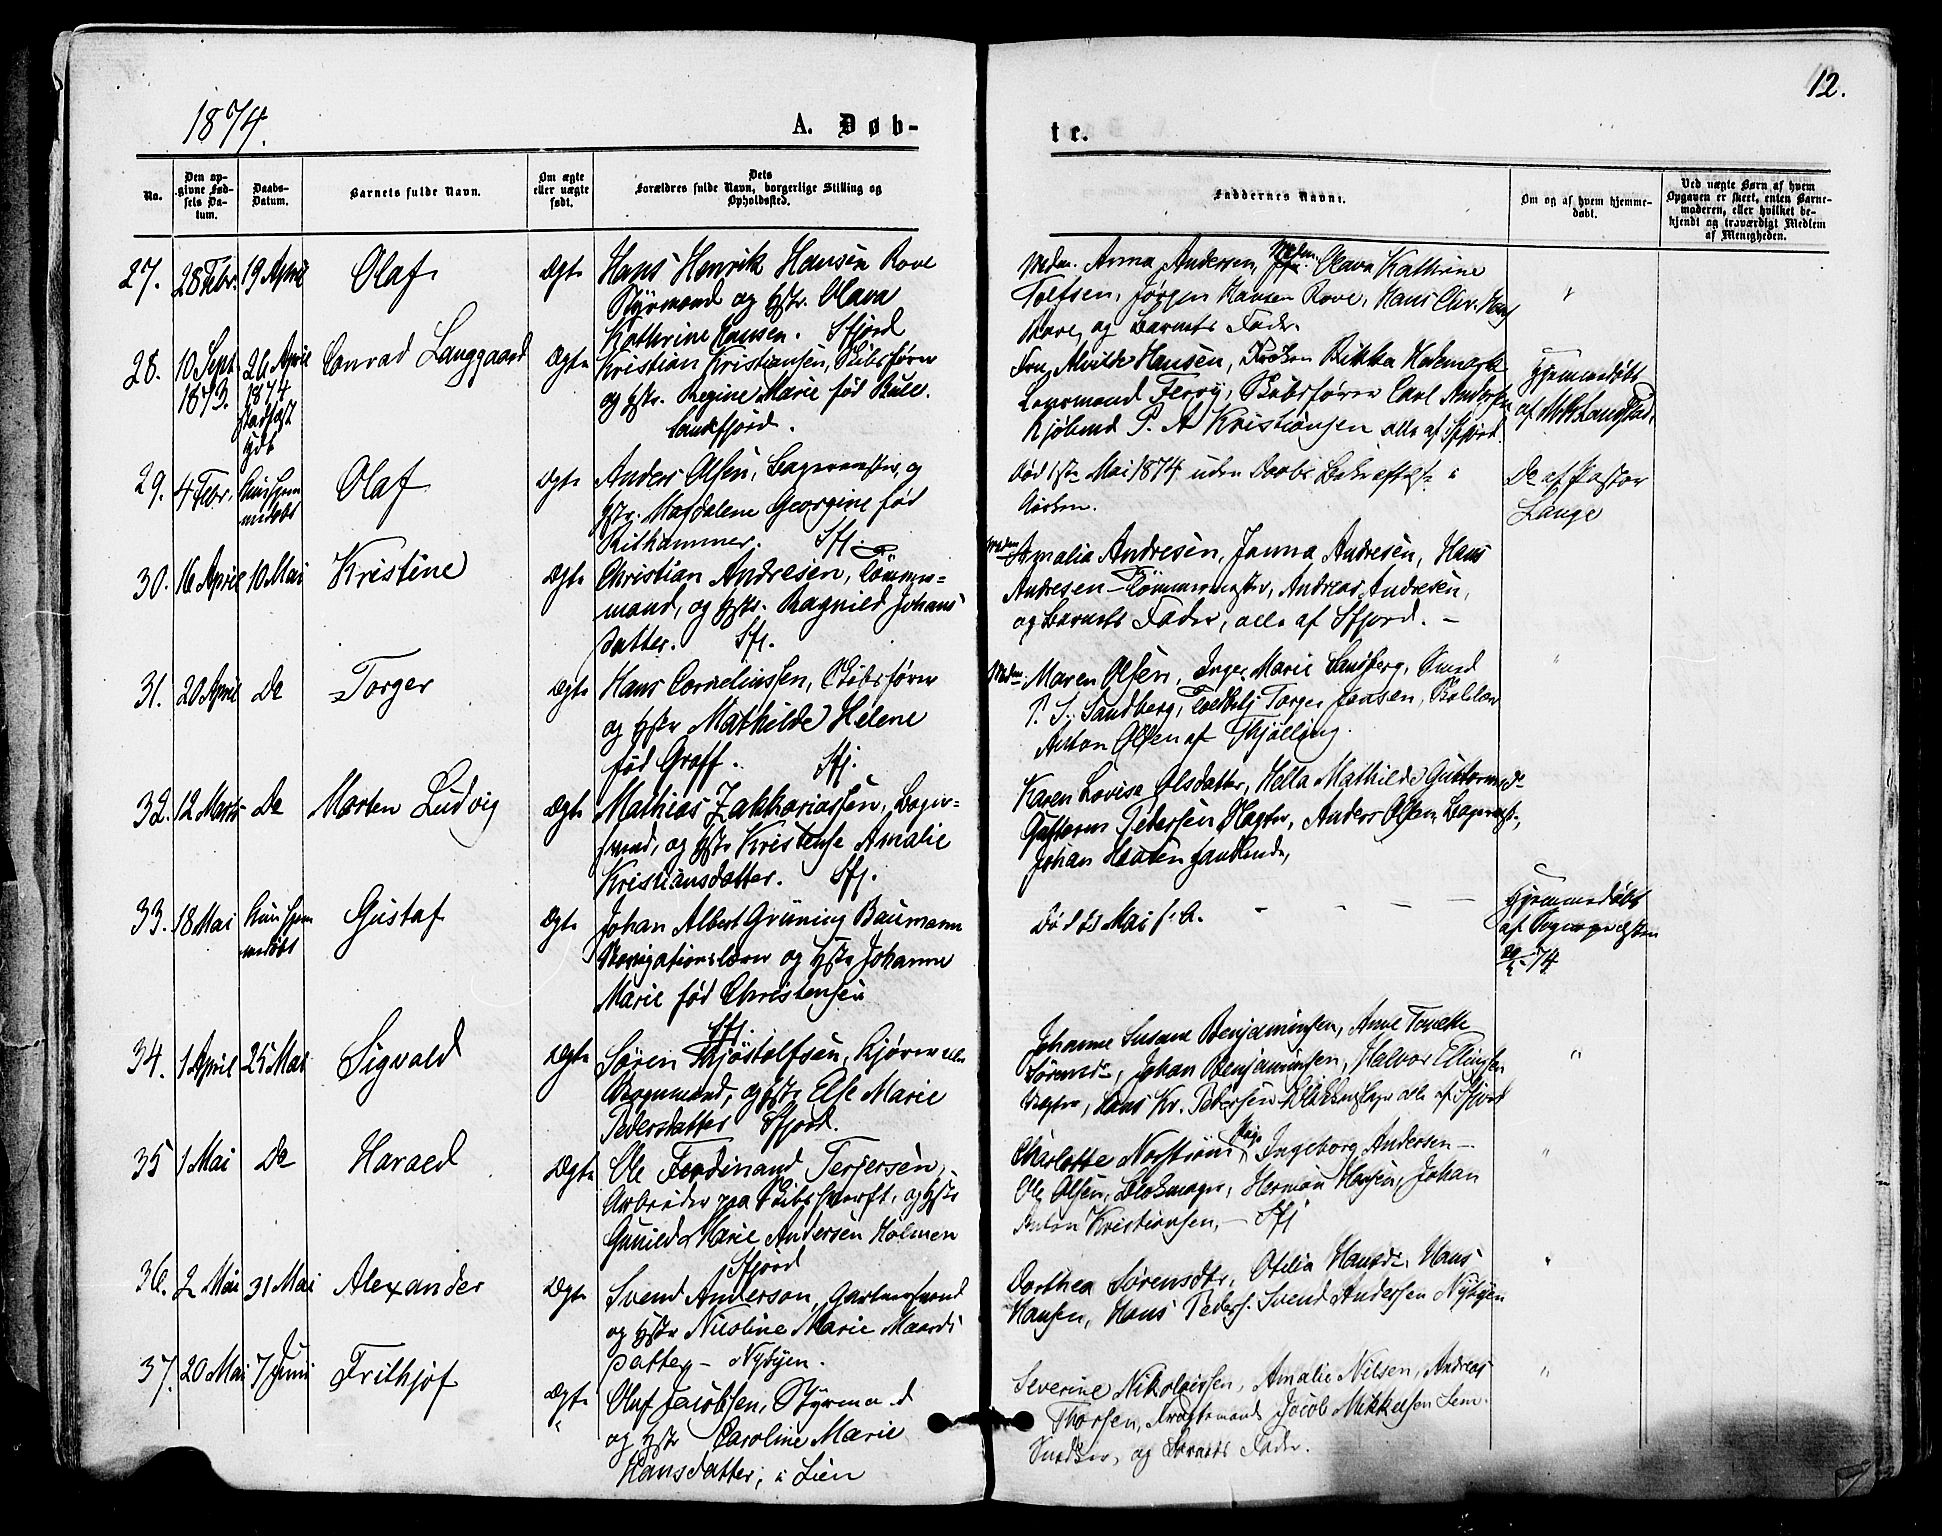 1874.
A. Døb-
te.
12.
No.
Den opgivne Fødsels Datum.
Daabs-Datum.
Barnets fulde Navn.
Om ægte eller uægte født.
Dets Forældres fulde Navn, borgerlige Stilling og Opholdssted.
Faddernes Navne.
Om og af hvem hjemmedøbt.
Ved uægte Børn af hvem Opgaven er skeet, enten Barnemoderen, eller hvilket bekjendt og troværdigt Medlem af Menigheden.
27. 28 Febr. 19 April Olaf Ægte
Hans Henrik Hansen Rove
Styrmand og Hstr. Olava
Kathrine Hansen. Sfjord
Mdm. Anna Andersen, Mdm. Olava Kathrine
Tolfsen, Jørgen Hansen Rove, Hans Chr. Hans
Rove, og Barnets Fader.
28. 10 Sept 1873. 26 April 1874 Conrad Langgaard Ægte
Kristian Kristiansen, Skibsfører
og Hstr. Regine Marie født Bull.
Sandefjord.
Fru Alvilde Hansen, Frøken Rikka
Skibsfører Carl Andersen
P. A Kristiansen alle af Sfjord.
Hjemmedøbt
af M B Landstad.
29. 4 Febr. Kun hjemmedøbt Olaf Ægte
Anders Olsen, Bagermester, og
Hstr. Magdalene Georgine fød
Sfj.
Død 1ste Mai 1874 uden Daabs Bekræftelse i
Kirken.
Do af Pastor
Lange
30. 16 April 10 Mai Kristine Ægte
Christian Andresen, Tømmermand, og Hstr. Ragnild Johans
datter. Sfj.
Amalia Andresen, Janna Andresen, Hans
Andresen Tømmermester, Andreas Andresen,
og Barnets Fader, alle af Sfjord. –
31. 20 April Do Torger Ægte
Hans Corneliussen, Skibsfører
og Hstr Mathilde Helene
fød Graff. Sfj.
Mdm Maren Olsen, Inger Marie Sandberg, Smed
P. S. Sandberg, Torger Jensen,
Anton Olsen af Thjølling.
32. 12 Marts Do Morten Ludvig Ægte
Mathias Zakkariassen, Bager-
svend, og Hstr Kristense Amalie
Kristiansdatter. Sfj.
Karen Lovise Olsdatter, Hella Mathilde Guttormsdr
Guttorm Pedersen Slagter, Anders Olsen, Bagermstr.,
Johan Hansen Handlende,
33. 18 Mai Kun hjemmedøbt Gustaf Ægte
Johan Albert Grüning Baumann
Navigationslærer og Hstr Johanne
Marie fød Christensen
Sfj.
Død 21 Mai s. A.
Hjemmedøbt
af Sognepræsten
74
34. 1 April 25 Mai Sigvald Ægte
Søren Thjøstolfsen, Kjører eller
Vognmand, og Hstr Else Marie
Pedersdatter Sfjord.
Johanne Susane Benjaminsen, Anne Tonette
Sørensdr, Johan Benjaminsen, Halvor Ellingsen
Slagter, Hans Kr. Pedersen Blikkenslager alle af Sfjord
35 1 Mai Do Harald Ægte
Ole Ferdinand Terjersen,
Arbeider paa Skibsværft, og Hstr
Gunild Marie Andersen Holmen
Sfjord
Charlotte Norstrøm, Pige Ingeborg Andersen –
Ole Olsen, Blokmager, Herman Hansen, Johan
Anton Kristiansen, – Sfj
36. 2 Mai 31 Mai Alexander Ægte
Svend Anderson, Gartnersvend
og Hstr Nicoline Marie
datter – Nybyen.
Dorthea Sørensdtr, Otelia Hansdr, Hans
Hansen, Hans Peders. Svend Andersen Nybyen
37. 20 Mai 7 Juni Frithjof Ægte
Oluf Jacobsen, Styrmand
og Hstr Caroline Marie
Hansdatter, i Lien
Severine Nikolaissen, Amalie Nilsen, Andreas
Thorsen, Jacob Mikkelsen Lem
Snedker, og Barnets Fader.